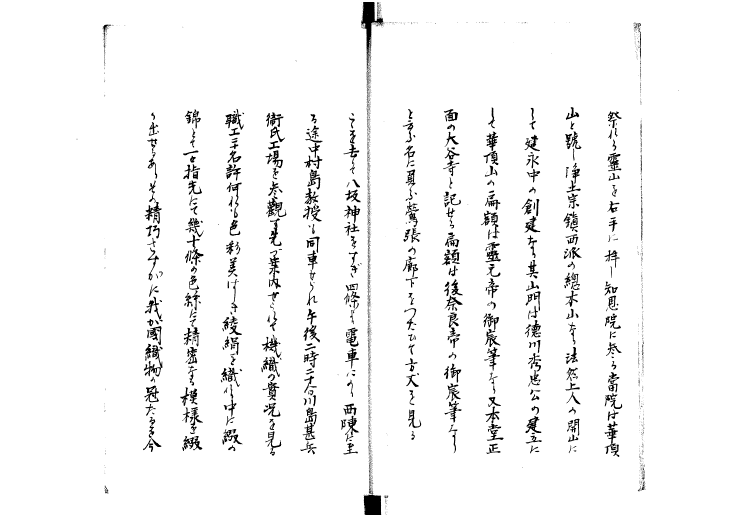 祭れる靈山を右手に拝し知恩院に参る當院は華頂
山と號し浄土宗鎮西派の總本山なる法然上人の開山に
して建永中の創建なる其山門は徳川秀忠公の建立に
して華頂山の扁額は靈元帝の御宸筆なり又本堂正
面の大谷寺と記せる扁額は後奈良帝の御宸筆なり
と云ふ名に負ふ鶯張の廊下をつたひて方丈を見る
こを去て八坂神社をすぎ四條より電車にのり西陳に至
る途中村島教授も同車せられ午後二時二十分川島甚兵
衛氏工場を参觀す先づ案内せられて機織の實况を見る
職工三名許何れも色彩美はしき綾絹を織れる中に綴の
錦とて一々指先にて幾十條の色絲にて精密なる模様を綴
り出せるあり其の精巧さすがに我が國織物の冠たる今